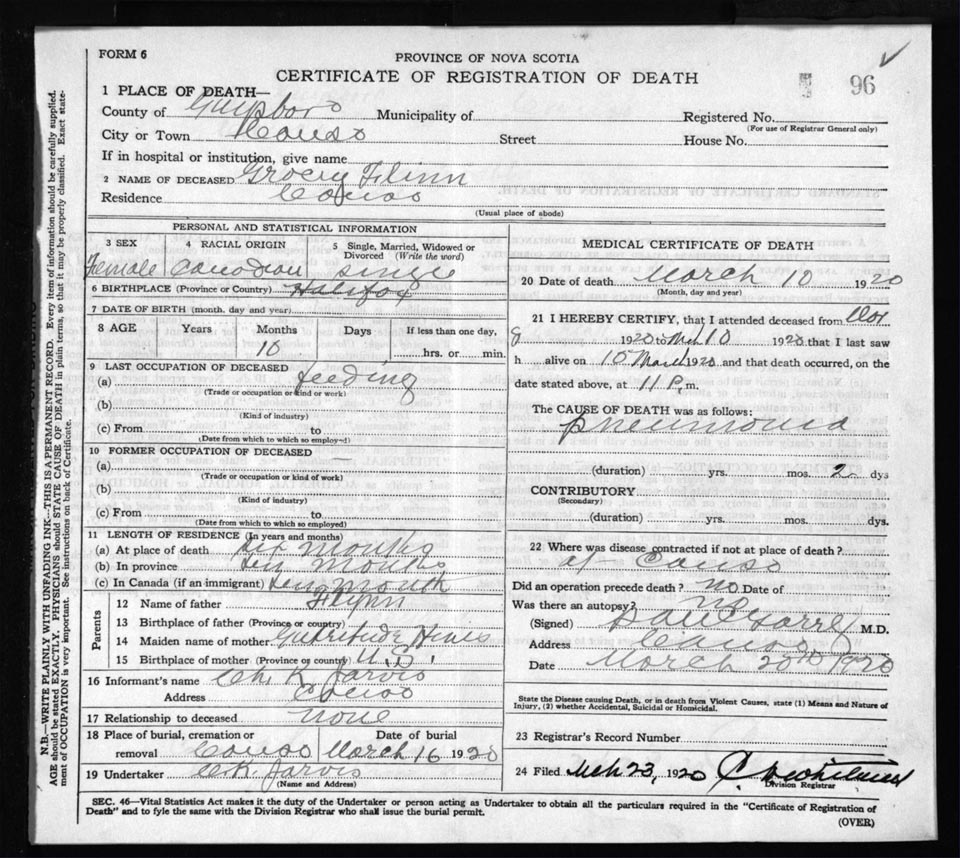 FORM 6
PROVINCE OF NOVA SCOTIA
CERTIFICATE OF REGISTRATION OF DEATH
96
1 PLACE OF DEATH—
County of Guysboro Municipality of Registered No.
(For use of Registrar General only)
City or Town Canso Street House No.
If in hospital or institution, give name
2 NAME OF DECEASED Gracey Flinn
Residence Canso
(Usual place of abode)
PERSONAL AND STATISTICAL INFORMATION
3 SEX 4 RACIAL ORIGIN 5 Single, Married, Widowed or Divorced (Write the word)
Female Canadian Single
6 BIRTHPLACE (Province or Country) Halifax
7 DATE OF BIRTH (month, day and year)
8 AGE Years Months Days If less than one day,
10 hrs. or min.
9 LAST OCCUPATION OF DECEASED
(a) feeding
(Trade or occupation or kind or work)
(b)
(Kind of industry)
(c) From to
(Date from which to which so employed)
10 FORMER OCCUPATION OF DECEASED —
(a)
(Trade or occupation or kind of work)
(b)
(Kind of industry)
(c) From to
(Date from which to which so employed)
11 LENGTH OF RESIDENCE (In years and months)
(a) At place of death six months
(b) In province ten months
(c) In Canada (if an immigrant) ten month
Parents
12 Name of father Flynn
13 Birthplace of father (Province or country)
14 Maiden name of mother Gutritude Hines
15 Birthplace of mother (Province or country) N.S.
16 Informant's name Chs K Jarvis
Address Canso
17 Relationship to deceased none
18 Place of burial, cremation or removal Canso Date of burial March 16 1920
19 Undertaker C.K. Jarvis
(Name and Address)
MEDICAL CERTIFICATE OF DEATH
20 Date of death March 10 1920
(Month, day and year)
21 I HEREBY CERTIFY, that I attended deceased from
8 1920 to Mch 10 1920 that I last saw
h alive on 10 March 1920 and that death occurred, on the
date stated above, at 11 P.m.
The CAUSE OF DEATH was as follows:
pneumonia
(duration) yrs. mos. 2 dys
CONTRIBUTORY
(Secondary)
(duration) yrs. mos. dys.
22 Where was disease contracted if not at place of death?
at Canso
Did an operation precede death? no Date of
Was there an autopsy? no
(Signed) M.D.
Address Canso
Date March 20th 1920
State the Disease causing Death, or in death from Violent Causes, state (1) Means and Nature of
Injury, (2) whether Accidental, Suicidal or Homicidal.
23 Registrar's Record Number
24 Filed Mch 23, 1920
Division Registrar
SEC. 46—Vital Statistics Act makes it the duty of the Undertaker or person acting as Undertaker to obtain all the particulars required in the "Certificate of Registration of
Death" and to fyle the same with the Division Registrar who shall issue the burial permit.
(OVER)
N.B.—WRITE PLAINLY WITH UNFADING INK—THIS IS A PERMANENT RECORD. Every item of information should be carefully supplied.
AGE should be stated EXACTLY. PHYSICIANS should STATE CAUSE OF DEATH in plain terms, so that it may be properly classified. Exact state-
ment of OCCUPATION is very important. See instructions on back of Certificate.